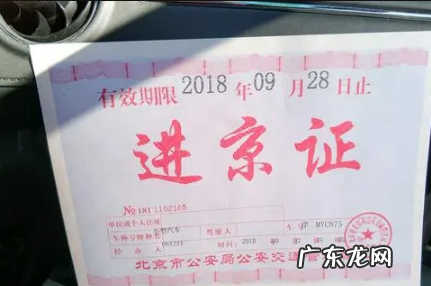 有效期限 2018 年 09 月 28 日止
进京证
No 1811102165
单位或个人住址
车种号牌种类 小型汽车 驾驶人 车号 MYC875
经办人 时间: 2018
北京市公安局公安交通管
广东龙网